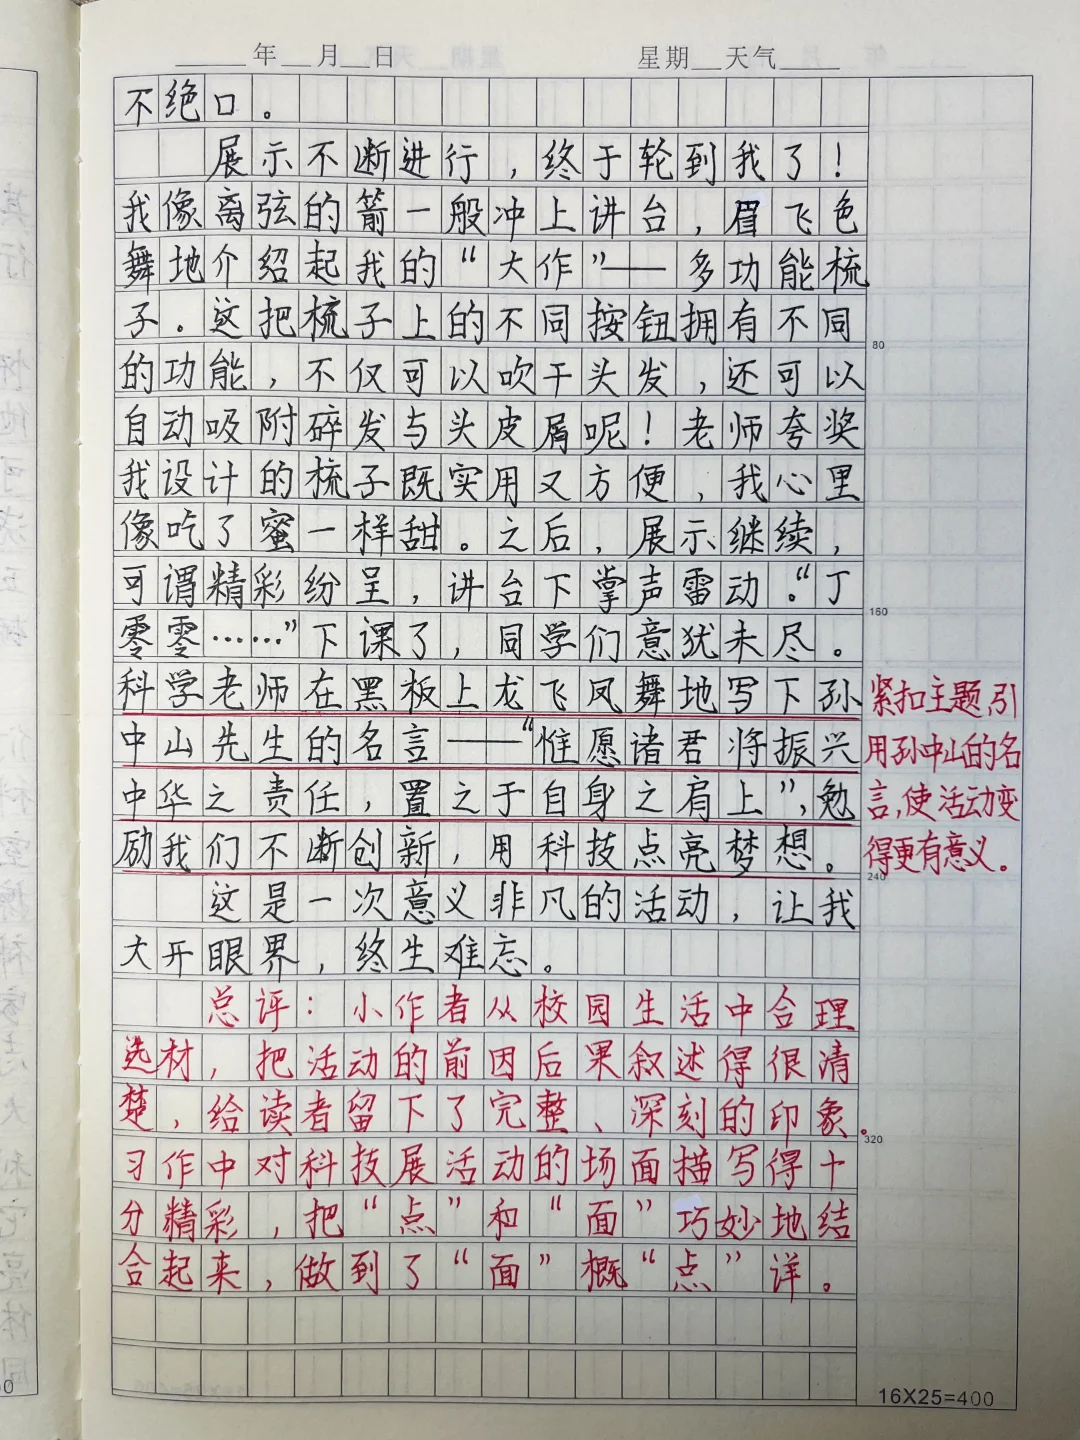 年 月 日 星期 天气
不绝口。
展示不断进行，终于轮到我了！
我像离弦的箭一般冲上讲台，眉飞色
舞地介绍起我的“大作”——多功能梳
子。这把梳子上的不同按钮拥有不同
80
的功能，不仅可以吹干头发，还可以
自动吸附碎发与头皮屑呢！老师夸奖
我设计的梳子既实用又方便，我心里
像吃了蜜一样甜。之后，展示继续，
可谓精彩纷呈，讲台下掌声雷动。“丁
160
零零……”下课了，同学们意犹未尽。
科学老师在黑板上龙飞凤舞地写下孙
中山先生的名言——“惟愿诸君将振兴
中华之责任，置之于自身之肩上”，勉
励我们不断创新，用科技点亮梦想。
紧扣主题，引
用孙中山的名
言，使活动变
得更有意义。
240
这是一次意义非凡的活动，让我
大开眼界，终生难忘。
总评：小作者从校园生活中合理
选材，把活动的前因后果叙述得很清
楚，给读者留下了完整、深刻的印象。
320
习作中对科技展活动的场面描写得十
分精彩，把“点”和“面”巧妙地结
合起来，做到了“面”概“点”详。
16X25=400